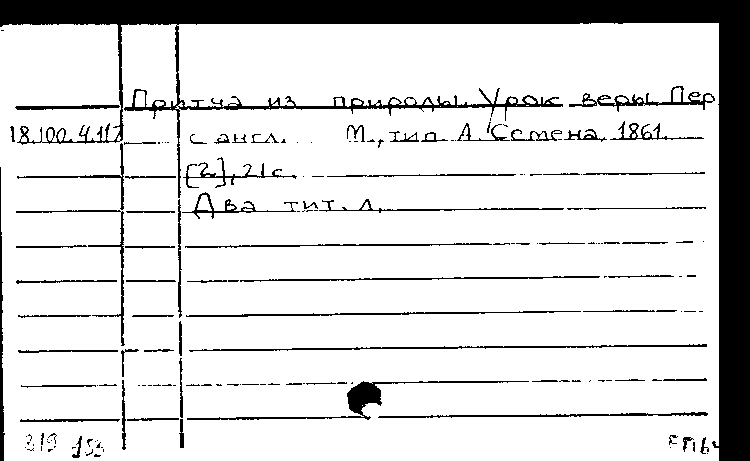 Притча из природы. Урок веры. Пер
18.100.4.117 с англ. М., тип. А. Семена, 1861.
[2], 21 с.
Два тит. л.
319 153